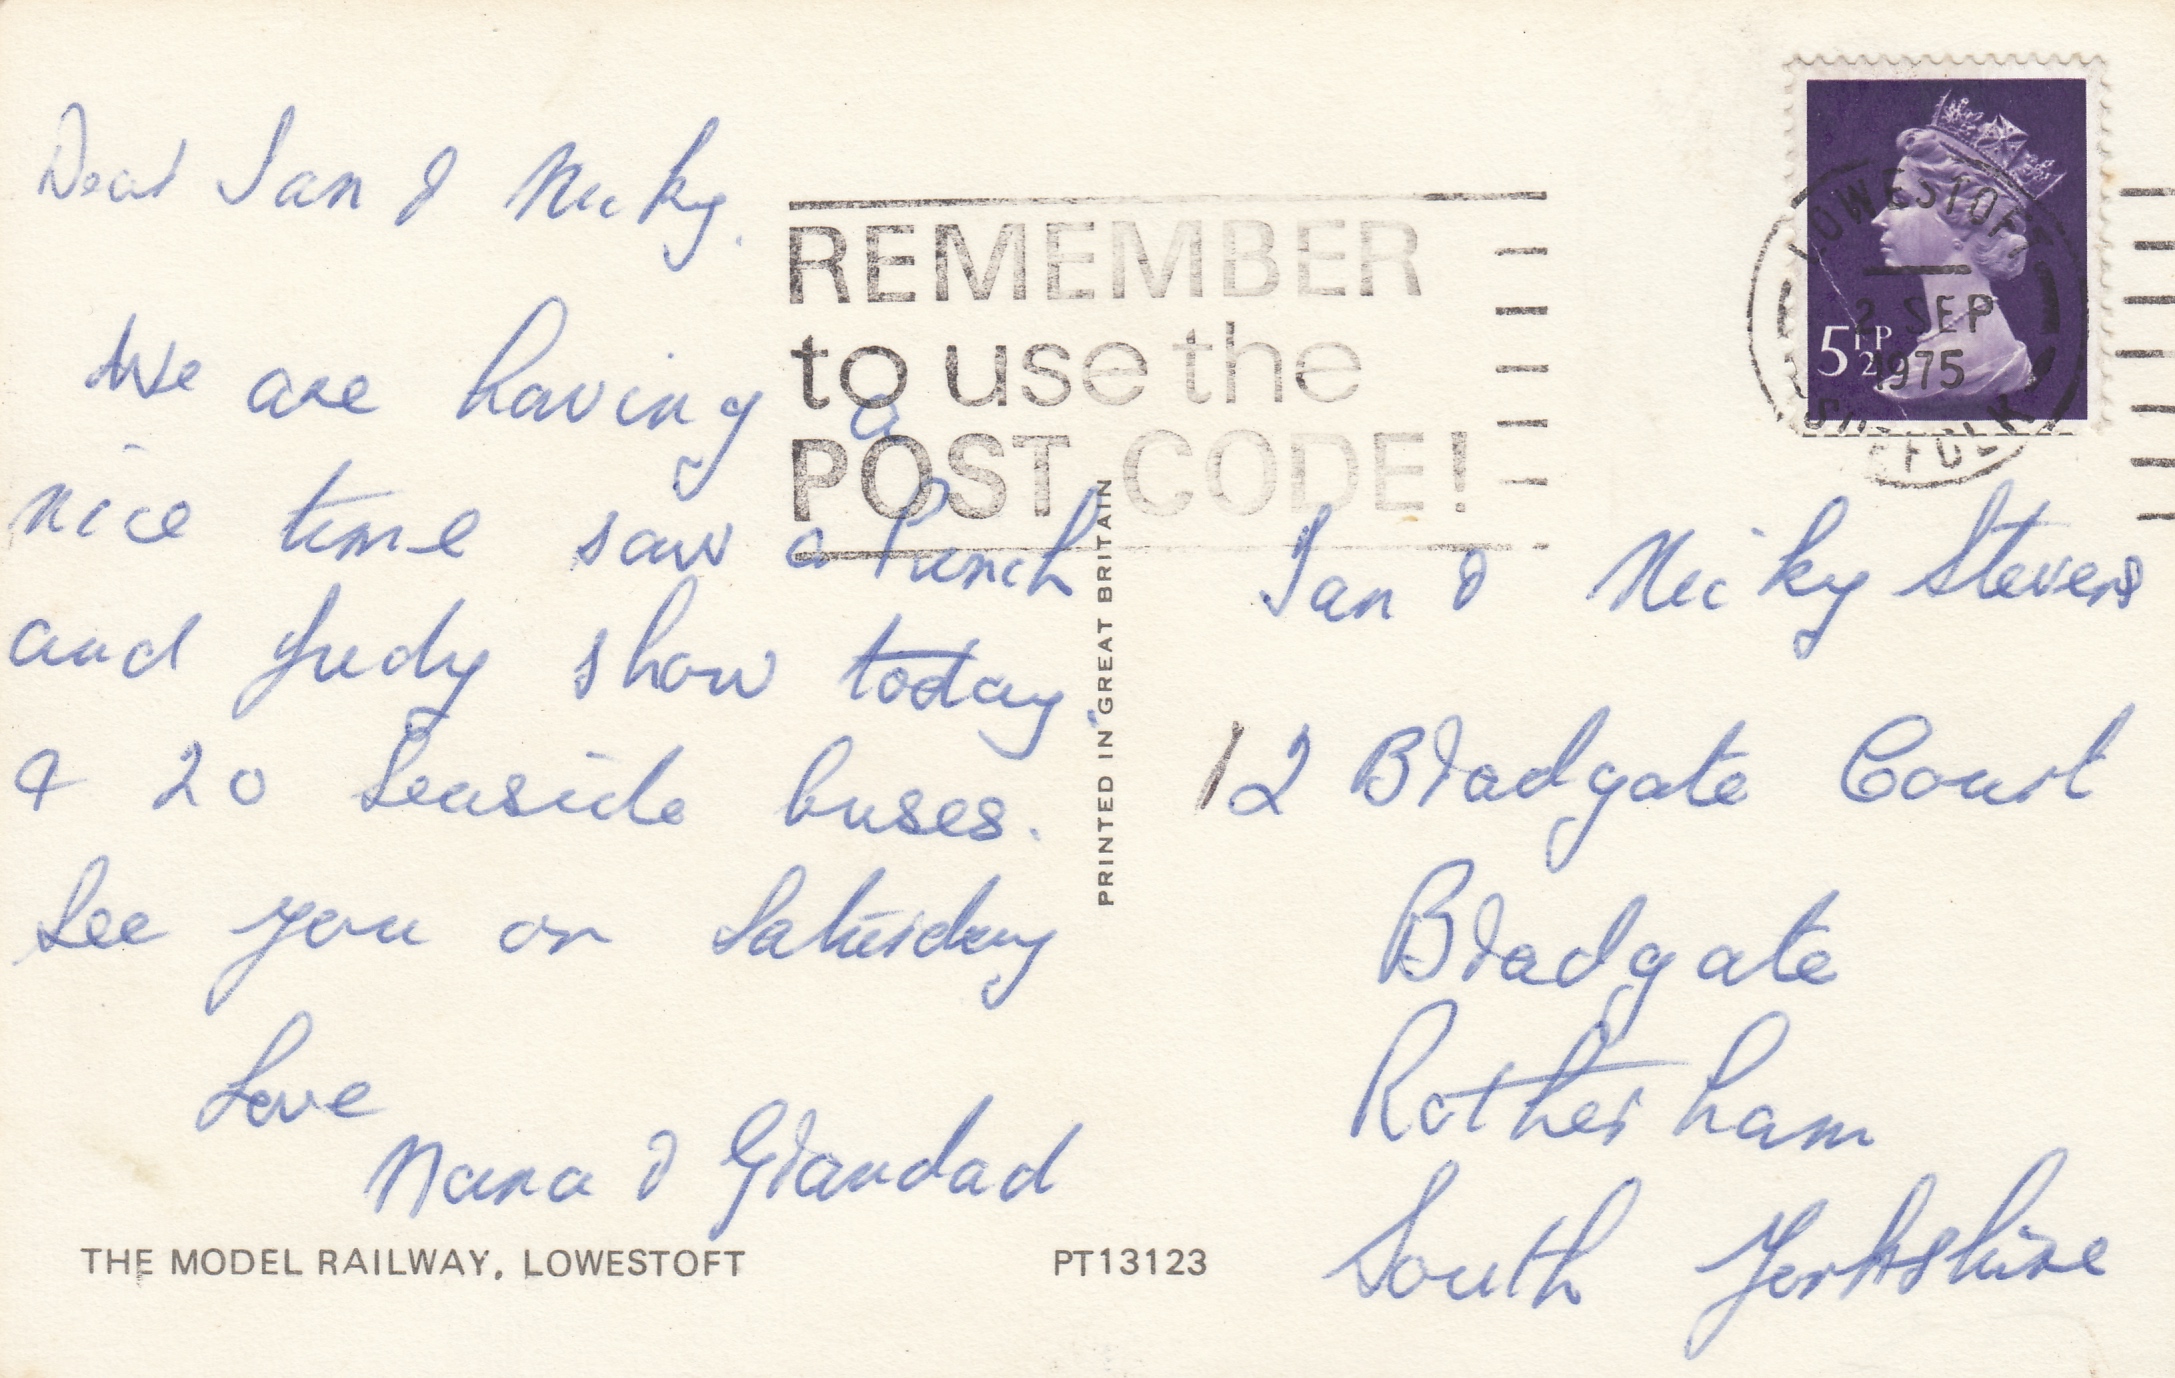 Dear Ian & Nicky.
We are having a
nice time saw a Punch
and Judy show today.
& 20 Seaside buses.
See you on Saturday
Love
Nana & Grandad
THE MODEL RAILWAY, LOWESTOFT
PT13123
PRINTED IN GREAT BRITAIN
REMEMBER
to use the
POST CODE!
LOWESTOFT
2 SEP
1975
SUFFOLK
5½P
Ian & Nicky Stevens
12 Bradgate Court
Bradgate
Rotherham
South Yorkshire